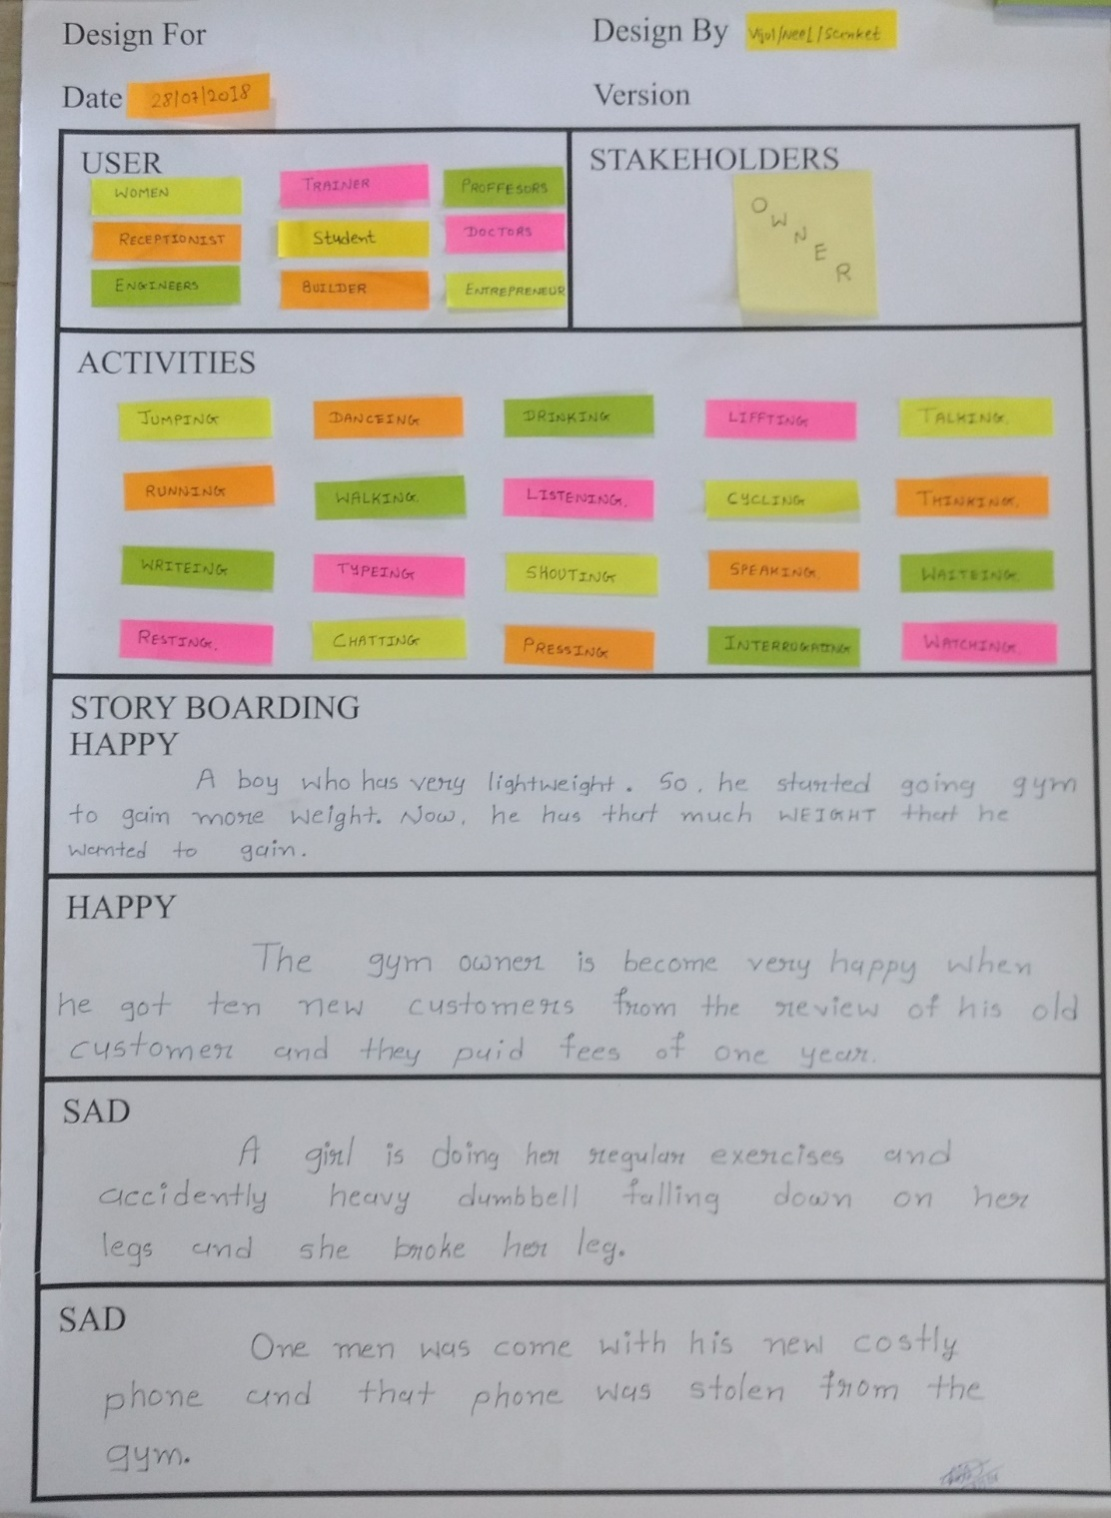 Design For
Design By Vijol/Neel/Sanket
Date 28/07/2018
Version
USER
WOMEN TRAINER PROFFESORS
RECEPTIONIST Student DOCTORS
ENGINEERS BUILDER ENTREPRENEUR
STAKEHOLDERS
OWNER
ACTIVITIES
JUMPING DANCEING DRINKING LIFFTING TALKING.
RUNNING WALKING. LISTENING. CYCLING THINKING.
WRITEING TYPEING SHOUTING SPEAKING. WAITEING.
RESTING. CHATTING PRESSING INTERROGATING WATCHING.
STORY BOARDING
HAPPY
A boy who has very lightweight. So, he started going gym
to gain more weight. Now, he has that much WEIGHT that he
wanted to gain.
HAPPY
The gym owner is become very happy when
he got ten new customers from the review of his old
customer and they paid fees of one year.
SAD
A girl is doing her regular exercises and
accidently heavy dumbbell falling down on her
legs and she broke her leg.
SAD
One men was come with his new costly
phone and that phone was stolen from the
gym.